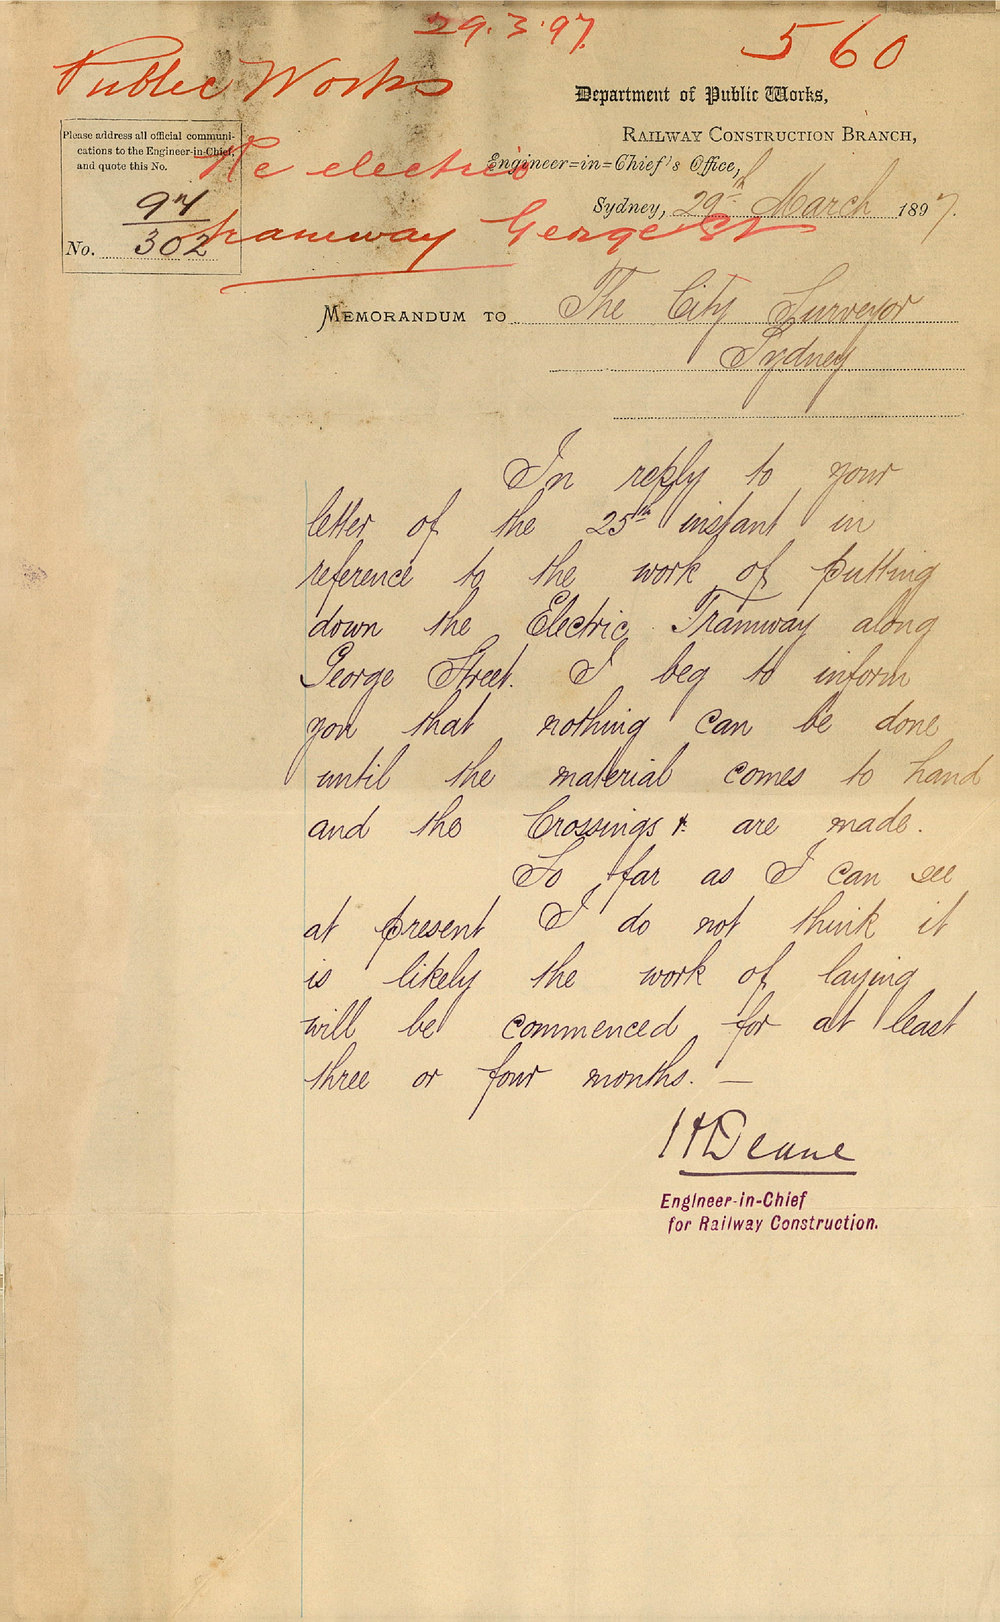 29.3.97.
560
Public Works
Department of Public Works,
Railway Construction Branch,
Please address all official communi-
cations to the Engineer-in-Chief,
and quote this No.
Re electric
Engineer=in=Chief's Office,
Sydney, 29th March 1897.
97
No. 302
tramway George St
Memorandum to The City Surveyor
Sydney
In reply to your
letter of the 25th instant in
reference to the work of putting
down the Electric Tramway along
George Street. I beg to inform
you that nothing can be done
until the material comes to hand
and the Crossings &c are made.
So far as I can see
at present I do not think it
is likely the work of laying
will be commenced for at least
three or four months. —
H Deane
Engineer-in-Chief
for Railway Construction.